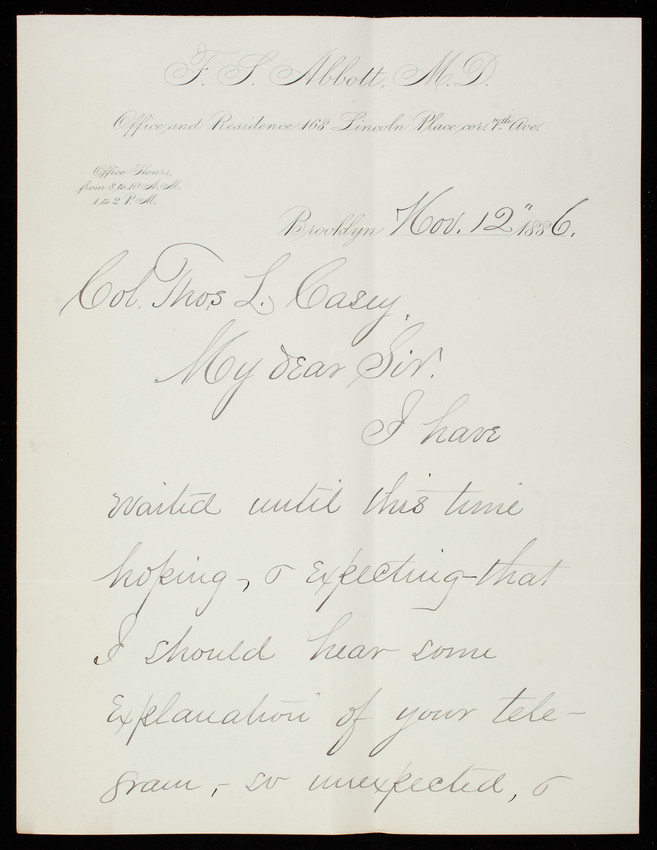 F. S. Abbott, M. D.
Office and Residence 168 Lincoln Place, cor: 7th Ave.
Office Hours,
from 8 to 10 A. M.
1 to 2 P. M.
Brooklyn, Nov. 12" 1886.
Col. Thos L. Casey,
My dear Sir.
I have
waited until this time
hoping, & expecting that
I should hear some
explanation of your tele-
gram, - so unexpected, &